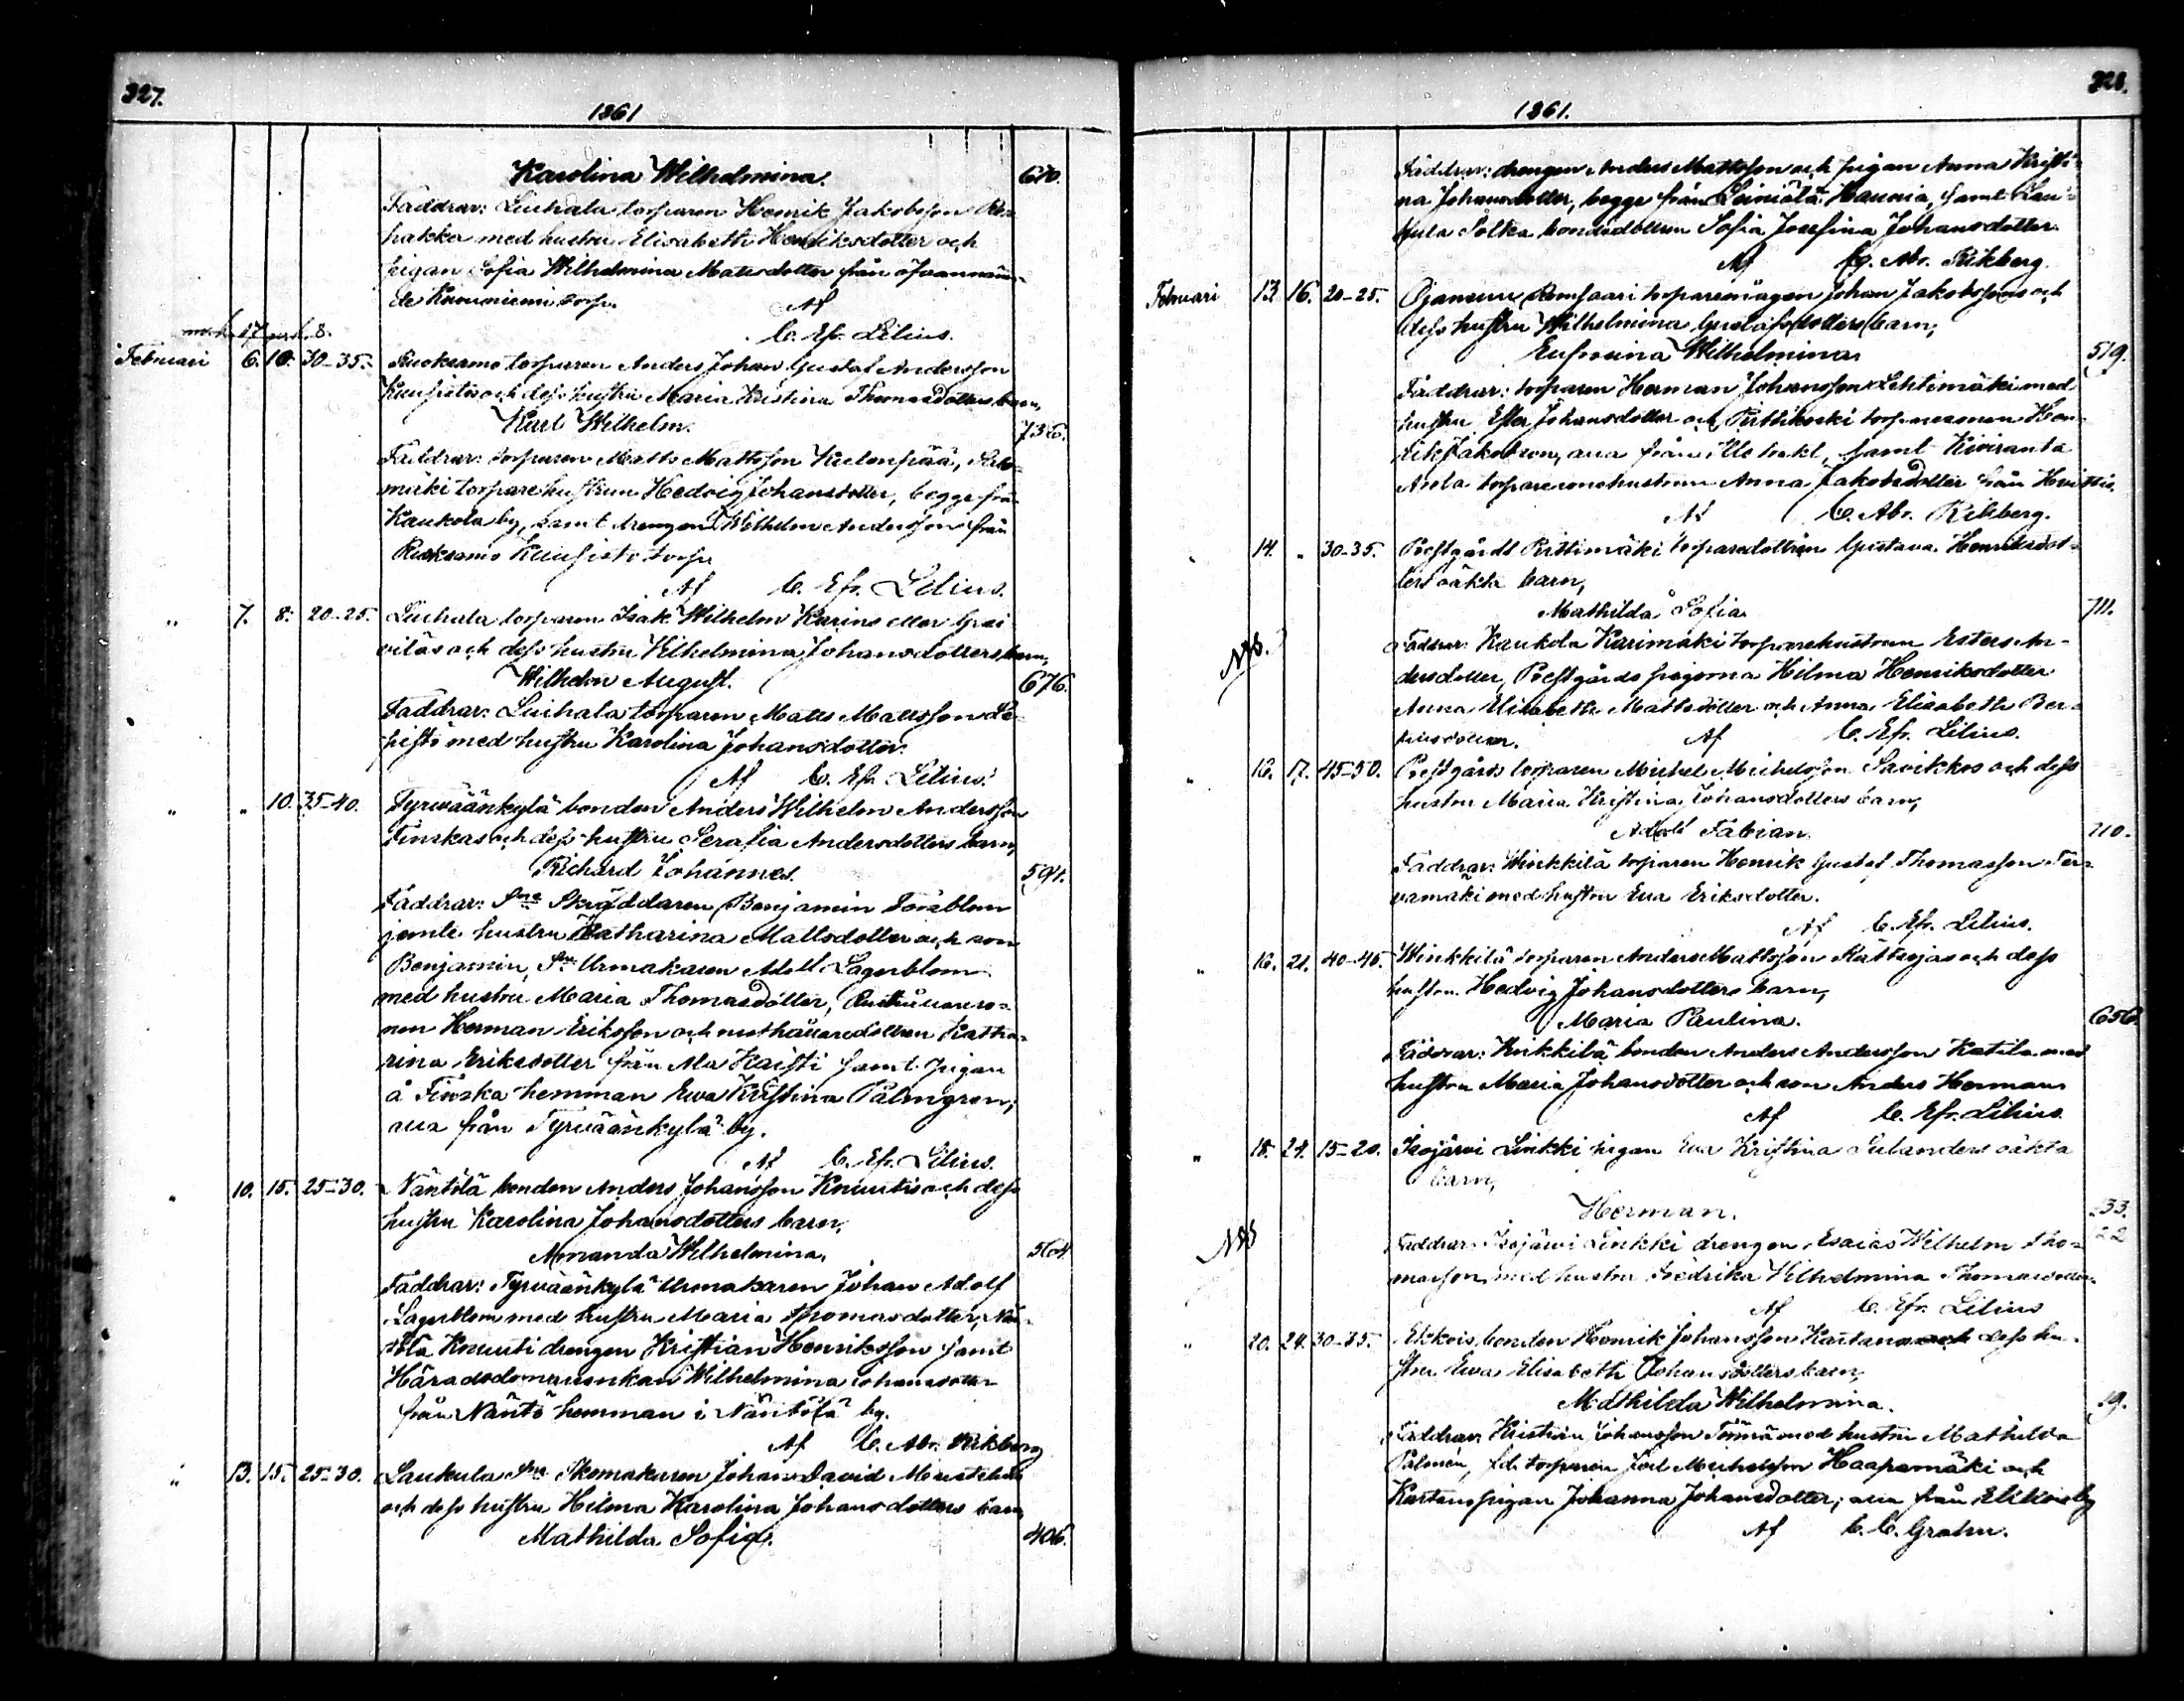 327.
1861
Karolina Wilhelmina. 670.
Faddrar: Liuhala torparen Henrik Jakobsson
pakka med hustru Elisabeth Henriksdotter och
pigan Sofia Wilhelmina Matsdotter från ofvannäm¬
de Kuouniemi torp. Af
C. Efr. Lilius.
17 8.
Februari 6. 10. 30–35. Ruoksamo torparen Anders Johan Gustaf Andersson
Kuusistos och dess hustru Maria Kristina Thomasdotters barn,
Karl Wilhelm. 736.
Faddrar: torparen Matts Mattsson Kielenpää,
mäki torparehustrun Hedvig Johansdotter, begge från
Kaukola by, samt drengen Wilhelm Andersson från
Ruoksamo Kuusisto torp
Af C. Efr. Lilius.
" 7. 8. 20–25. Liuhala torparen Isak Wilhelm Karins eller
och dess hustru Vilhelmina Johansdotters barn,
Wilhelm August. 676.
Faddrar: Liuhala torparen Matts Mattsson Le¬
pistö med hustru Karolina Johansdotter.
Af C. Efr. Lilius.
" " 10. 35–40. Tyrväänkylä bonden Anders Wilhelm Andersson
Finskas och dess hustru Serafia Andersdotters barn,
Richard Johannes. 594.
Faddrar: Sne Skräddaren Benjamin Törnblom
jemte hustru Katharina Mattsdotter och son
Benjamin, Sne Urmakaren Adolf Lagerblom
med hustru Maria Thomasdotter,
nen Herman Eriksson och rusthållaredottren Katha¬
rina Eriksdotter från Ala Haisti samt pigan
å Finska hemman Ewa Kristina Palmgren,
alla från Tyrväänkylä by.
Af C. Efr. Lilius.
" 10. 15. 25–30. Näntölä bonden Anders Johansson Knuutis och dess
hustru Karolina Johansdotters barn,
Amanda Wilhelmina. 564.
Faddrar: Tyrväänkylä Urmakaren Johan Adolf
Lagerblom med hustru Maria Thomasdotter, Nän¬
tölä Knuuti drengen Kristian Henriksson samt
Häradsdomareenkan Wilhelmina Johansdotter
från Näntö hemman i Näntölä by.
Af C. Abr. Rikberg
" 13. 15. 25–30. Laukula Sne Skomakaren Johan David
och dess hustru Hilma Karolina Johansdotters barn
Mathilda Sofia. 406.
328.
1861.
Faddrar: drengen Anders Mattsson och pigan Anna Kristi¬
na Johansdotter, begge från Leiniälä Haunia, samt Lau¬
kula Sölka bondedottren Sofia Josefina Johansdotter.
Af C. Abr. Rikberg.
Februari 13. 16. 20–25. Ojansuu torparemågen Johan Jakobssons och
dess hustru Wilhelmina Gustafsdotters barn,
Eufrosina Wilhelmina 519.
Faddrar: torparen Herman Johansson Lehtimäki med
hustru Ester Johansdotter och Perttikoski torparesonen Hen¬
rik Jakobsson, alla från Illo trakt, samt Kiviranta
Anla torparesonehustrun Anna Jakobsdotter från Huittis.
Af C. Abr. Rikberg.
" 14. " 30–35. Prestgårds Rittimäki torparedottren Gustava Henriksdot¬
ters oäkta barn,
Mathilda Sofia 711.
NB. Faddrar: Kaukola Karimäki torparehustrun Esters An¬
dersdotter, Prestgårds pigorna Hilma Henriksdotter
Anna Elisabeth Mattsdotter och Anna Elisabeth Ber¬
Af C. Efr. Lilius.
" 16. 17. 45–50. Prestgårds torparen Michel Michelsson Savikkos och dess
hustru Maria Kristina Johansdotters barn,
Adolf Fabian. 710.
Faddrar: Winkkilä torparen Henrik Gustaf Thomasson Ter¬
vamäki med hustru Eva Eriksdotter.
Af C. Efr. Lilius.
" 16. 21. 40–45. Winkkilä torparen Anders Mattsson och dess
hustru Hedvig Johansdotters barn,
Maria Paulina. 656.
Faddrar: Kinkkilä bonden Anders Andersson Katila med
hustru Maria Johansdotter och son Anders Herman
Af C. Efr. Lilius.
" 18. 24. 15–20. Isojärvi Linkki pigan Eva Kristina Sulanders oäkta
barn,
Herman. 233.
22
NB Faddrar: Isojärvi Linkki drengen Esaias Wilhelm Tho¬
masson med hustru Fredrika Wilhelmina Thomasdotter.
Af C. Efr. Lilius
" 20. 24. 30–35. Ekkois bonden Henrik Johansson Kartanos och dess hu¬
stru Ewa Elisabeth Johansdotters barn,
Mathilda Wilhelmina. 19.
Faddrar: Kristian Johansson Törmä med hustru Mathilda
Palmén, fd. torparen Joel Michelsson Haapamäki och
Kartano pigan Johanna Johansdotter, alla från Ekkois by
Af C. C. Grahn.